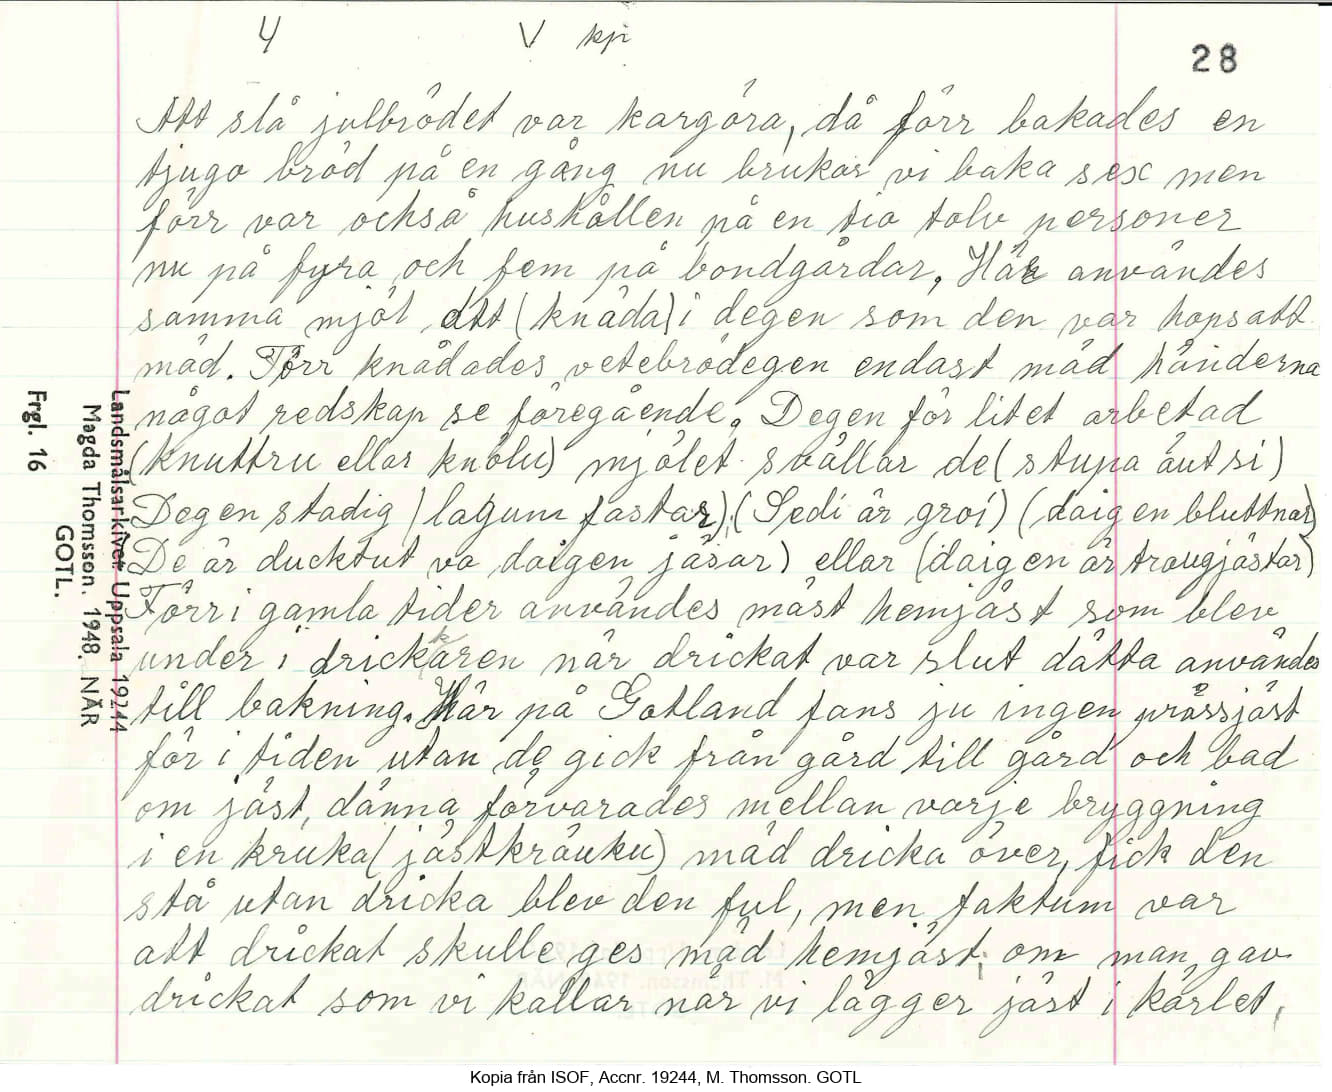 4 V kpi
28
Att slå julbrödet var kargöra, då förr bakades en
tjugo bröd på en gång nu brukar vi baka sex men
förr var också hushållen på en tio tolv personer
nu på fyra och fem på bondgårdar. Här användes
samma mjöl att (knåda) i degen som den var hopsatt
mäd. Förr knådades vetebrödegen endast mäd händerna
något redskap se föregående. Degen för litet arbetad
(knuttru ellar knölu) mjölet svällar de (stupa äutsi)
Degen stadig (lagum fastar) (Sedi är groi) (daigen bluttnar)
De är ducktut va daigen jäsar) ellar (daigen är traugjästar)
Förr i gamla tider användes mäst hemjäst som blev
under i drickkaren när drickat var slut dätta användes
till bakning. Här på Gotland fans ju ingen prässjäst
för i tiden utan de gick från gård till gård och bad
om jäst, dänna förvarades mellan varje bryggning
i en kruka (jästkräuku) mäd dricka över, fick den
stå utan dricka blev den ful, men faktum var
att drickat skulle ges mäd hemjäst, om man gav
drickat som vi kallar när vi lägger jäst i kärlet,
Landsmålsarkivet Uppsala 19244
Magda Thomsson. 1948. NÄR
GOTL.
Frgl. 16
Kopia från ISOF, Accnr. 19244, M. Thomsson. GOTL